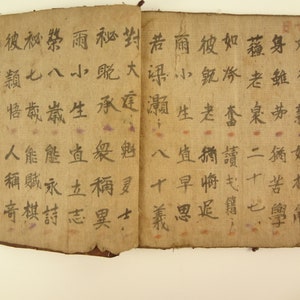 身雖勞猶苦學
蘇老泉二十七
彼既老猶悔遲
爾小生宜早思
若梁灝八十義
對大廷魁多士
秘既承衆稱異
爾小生宜立志
榮八歲能永詩
祕七歲能賦棋
彼類悟人稱奇